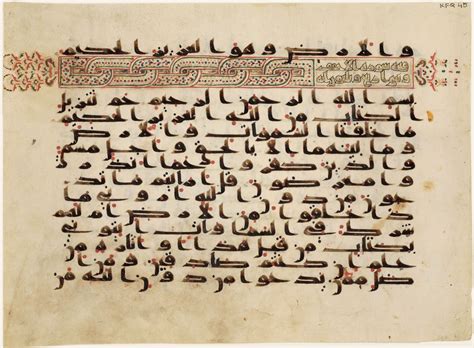 والارض وهو العزيز الحكيم
بسم الله الرحمن الرحيم حم تنزيل
الكتاب من الله العزيز الحكيم
ما خلقنا السموت والارض و
ما بينهما الا بالحق واجل مسمى
والذين كفروا عما انذروا
معرضون قل ارايتم ما تد
عون من دون الله اروني ما
ذا خلقوا من الارض ام لهم
شرك في السموت ايتوني
بكتاب من قبل هذا او اثارة من
علم ان كنتم صادقين ومن ا
ضل ممن يدعوا من دون الله من